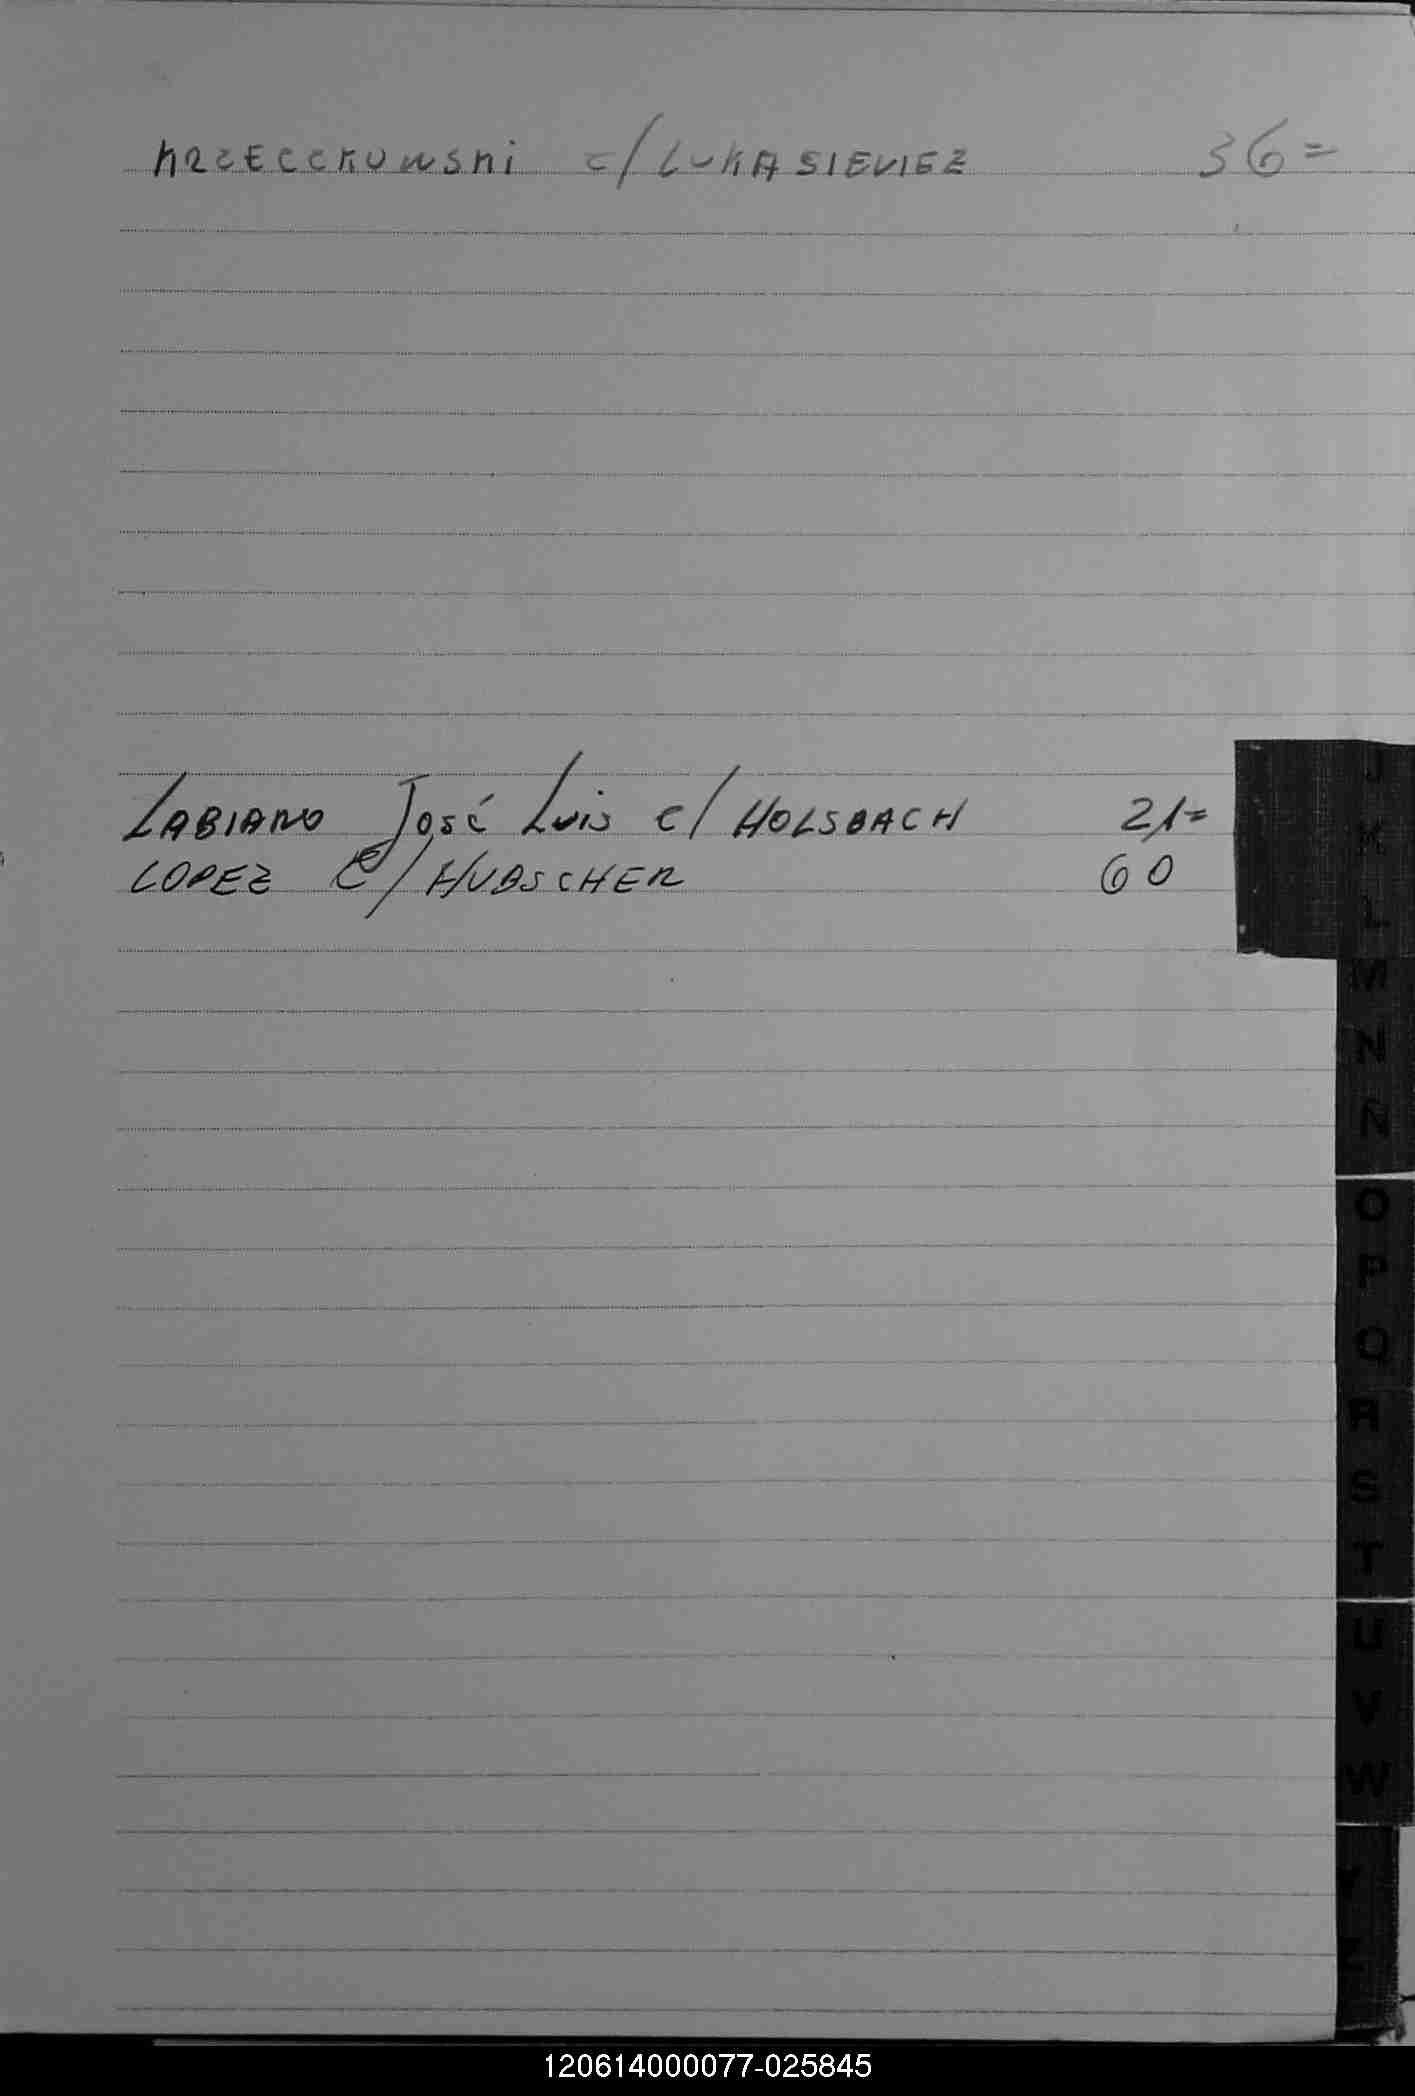 KRZECZKOWSKI c/ LUKASIEVIEZ 36=
LABIANO José Luis c/ HOLSBACH 21=
LOPEZ C/ HUBSCHER 60
J
K
L
M
N
Ñ
O
P
Q
R
S
T
U
V
W
Y
Z
120614000077-025845